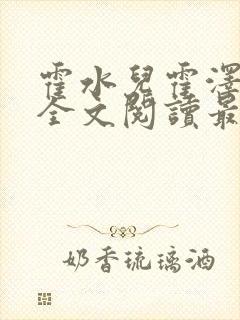 霍水兒霍澤
全文閱讀最
奶香琉璃酒